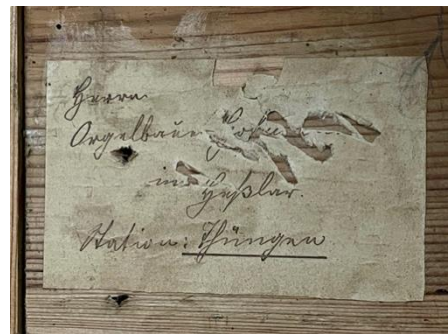 Herrn
Orgelbauer
in Heßlar.
Station: Thüngen.